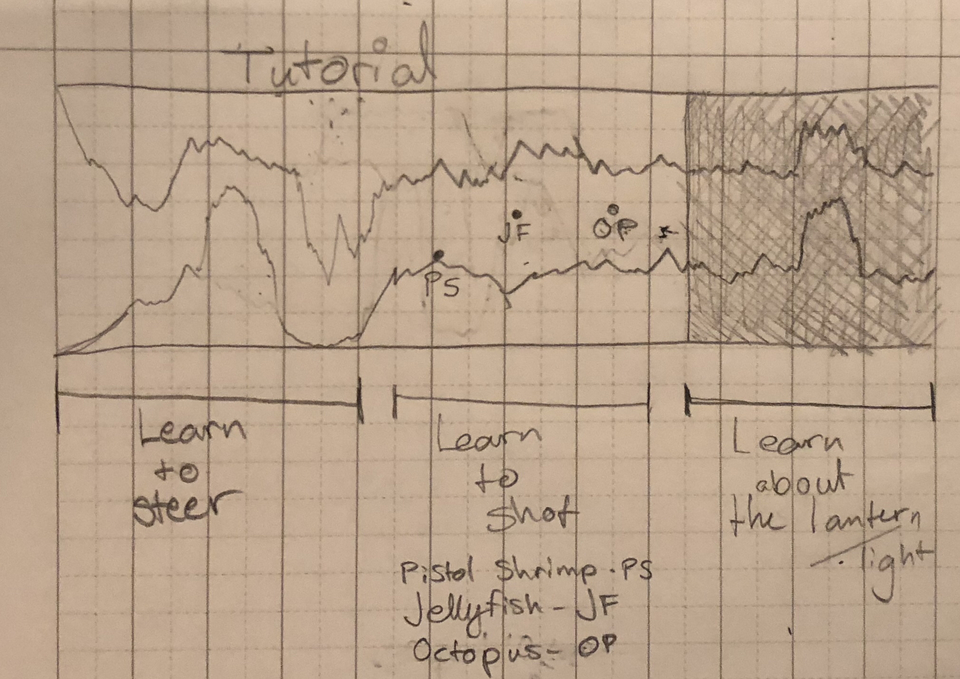 Tutorial
JF
OP
PS
Learn
to
steer
Learn
to
shot
Pistol Shrimp - PS
Jellyfish - JF
Octopus - OP
Learn
about
the lantern
light